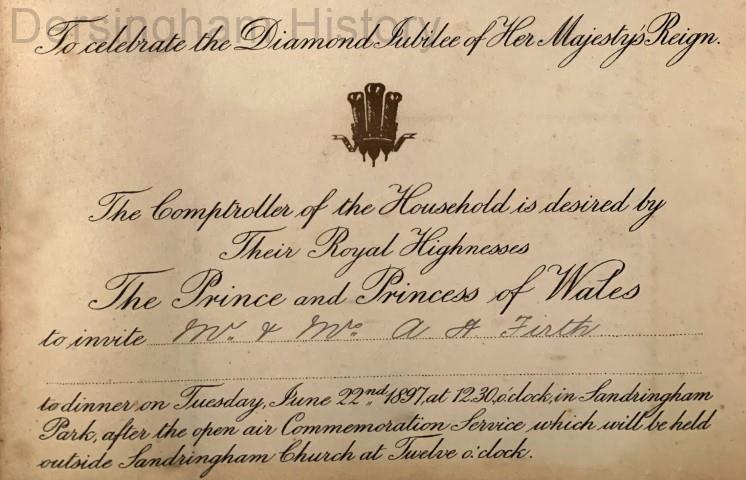 Dersingham History
To celebrate the Diamond Jubilee of Her Majesty's Reign.
The Comptroller of the Household is desired by
Their Royal Highnesses
The Prince and Princess of Wales
to invite Mr. & Mrs. A A Firth
to dinner on Tuesday, June 22nd 1897, at 12.30 o'clock, in Sandringham
Park, after the open air Commemoration Service which will be held
outside Sandringham Church at Twelve o'clock.